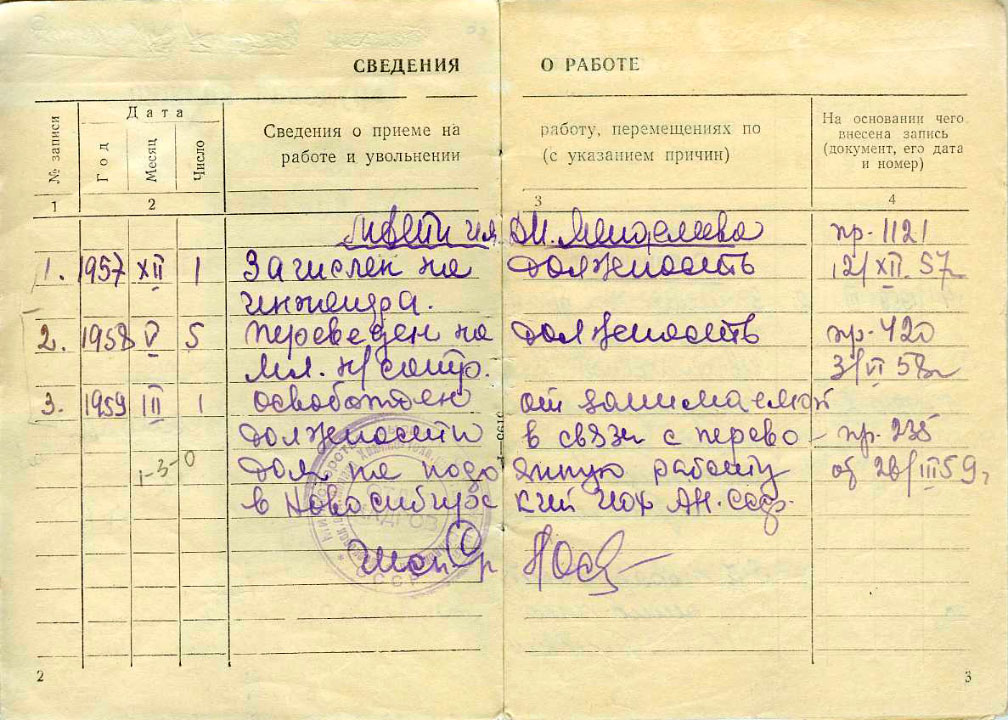 СВЕДЕНИЯ О РАБОТЕ
№ записи
Дата
Год
Месяц
Число
Сведения о приеме на работу, перемещениях по
работе и увольнении (с указанием причин)
На основании чего
внесена запись
(документ, его дата
и номер)
1 2 3 4
им. Д.И. Менделеева пр. 1121
1. 1957 XII 1 Зачислен на должность 12/XII. 57
инженера.
2. 1958 V 5 переведен на должность пр. 420
мл. н/сотр. 3/VI 58г
3. 1959 III 1 освобожден от занимаемой
должности в связи с перево- пр. 235
1-3-0 дом на постоянную работу от 26/III 59г
в Новосибирский ИОХ АН. СССР.
СССР
2
3